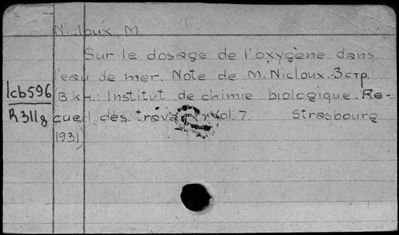 Nicloux, M
Sur le dosage de l'oxygène dans
l'eau de mer. Note de M. Nicloux. 3 стр.
В кн.: Institut de chimie biologique. Re-
cueil des travaux Vol. 7. Strasbourg
1931)
1cb596
R311g